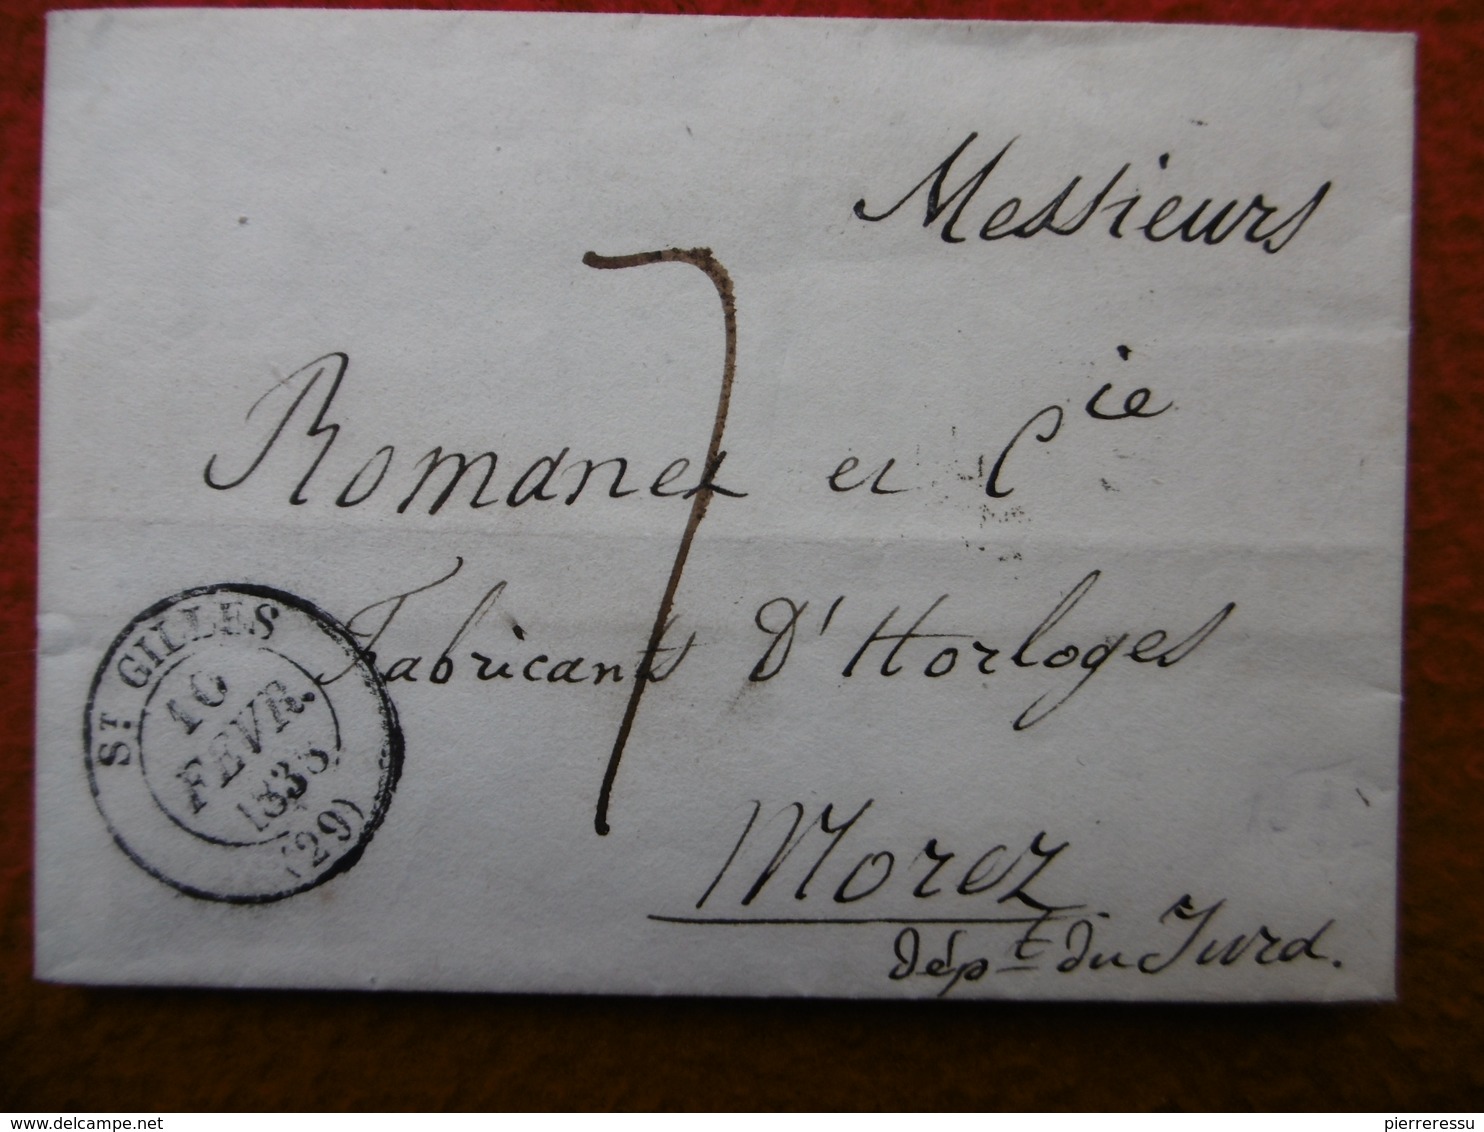 Messieurs
7
Romanet et Cie
Fabricants D'Horloges
Morez
dépt du Jura.
ST. GILLES
FEVR.
(29)
delcampe.net
pierreressu